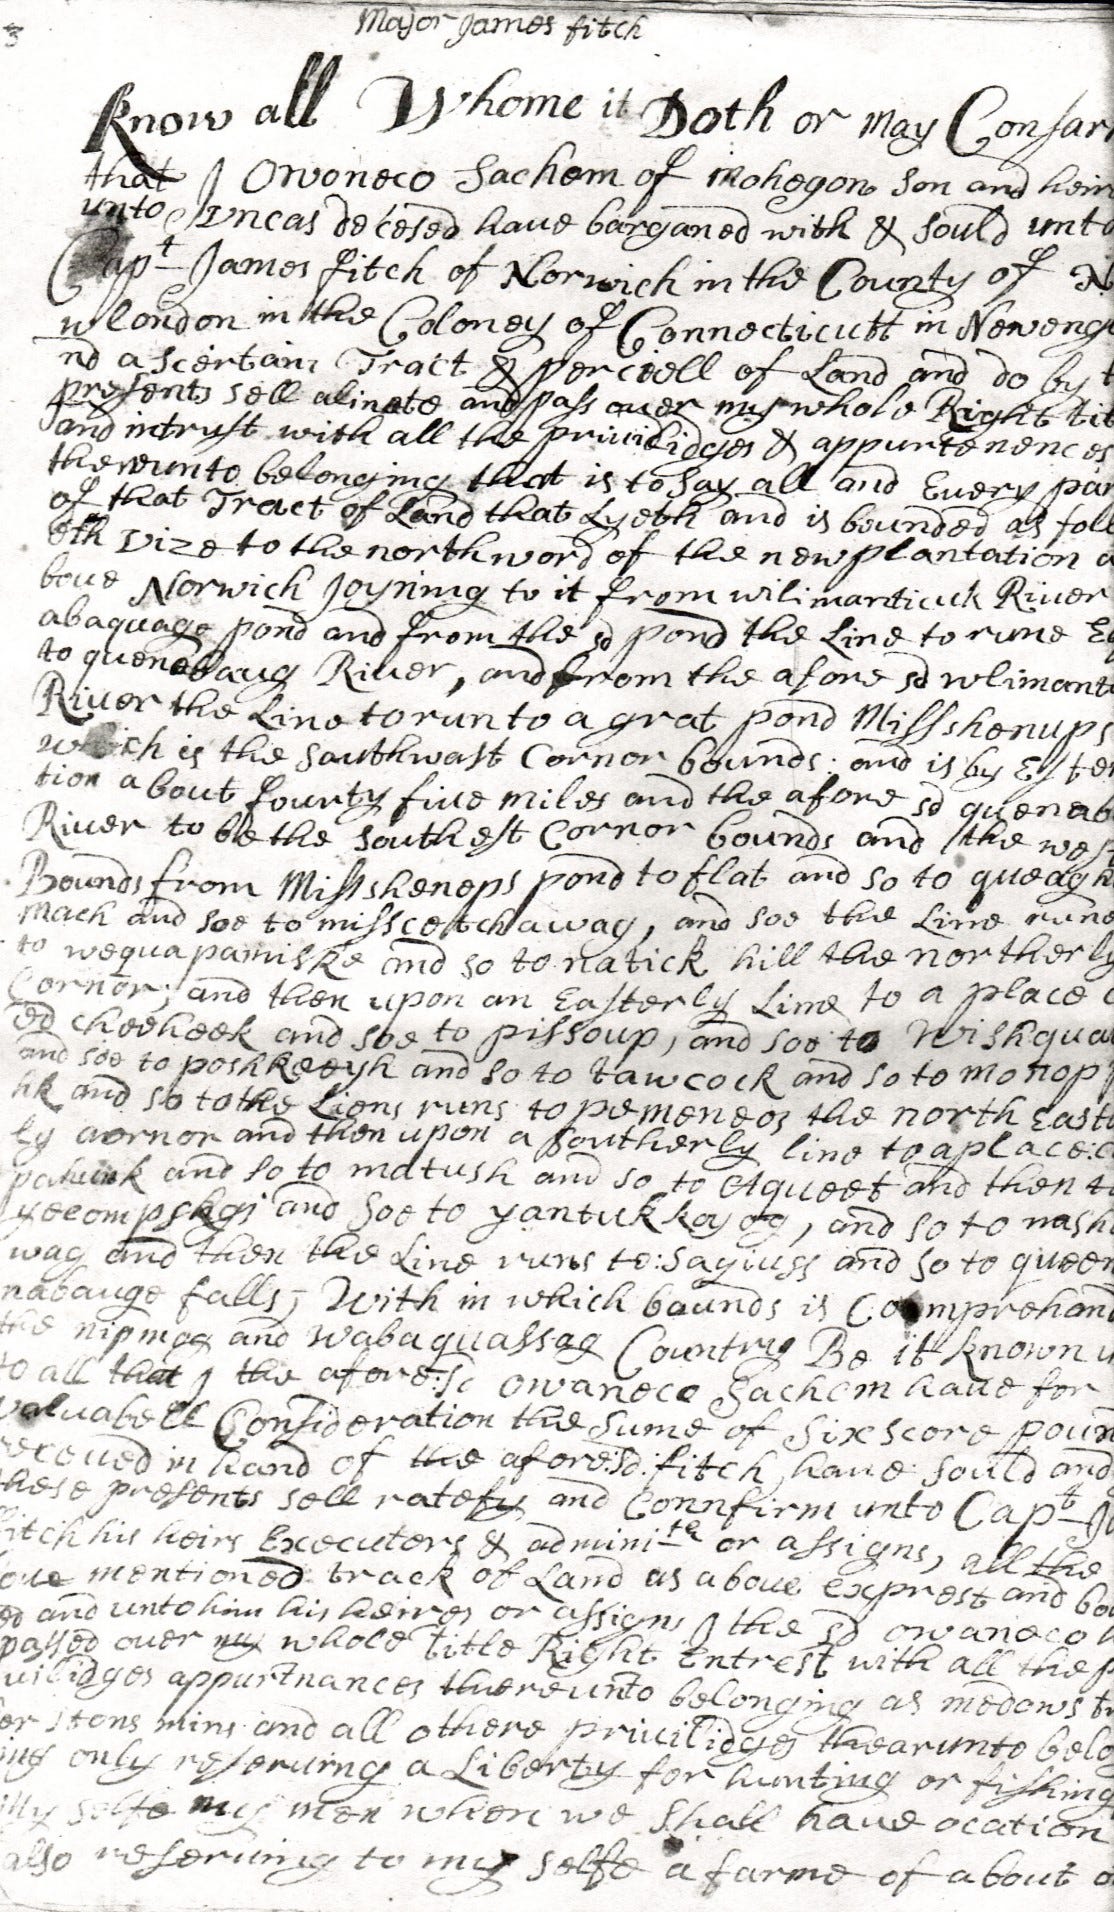 3
Major James fitch
Know all Whome it Doth or May Consarn
that J Owoneco Sachem of mohegon son and heir
unto Vncas decesed have barganed with & sould unto
Capt James fitch of Norwich in the County of N
w london in the Coloney of Connecticutt in Neweng
nd a scertain Tract & perciell of Land and do by
presents sell alinate and pass ouer my whole Right tit
and intryst with all the priuilidges & appurtenences
thereunto belonging that is to say all and Euery par
of that Tract of Land that Lyeth and is bounded as foll
eth vize to the northword of the new plantation a
boue Norwich Joyning to it from wilimanticuk Riuer
abaquage pond and from the sd pond the Line to rune Ea
to quenebaug Riuer, and from the afore sd wlimant
Riuer the Line to run to a grat pond Missshenups
which is the Southwast Cornor bounds: and is by Estem
tion about fourty fiue miles and the afore sd quenab
Riuer to be the Southest Cornor bounds and the west
Bounds from Missheneps pond to flat and so to queagh
mach and soe to misscetchawag, and soe the Line rune
to wequapamiske and so to natick hill the northerly
Cornor; and then upon an Easterly Line to a place c
ed cheeheek and soe to pissoup, and soe to Wishqua
and soe to poshkeeyh and so to tawcock and so to monopp
hk and so to the Lions runs to pemeneos the north East
ly cornor and then upon a Southerly line to a place: c
pahuuk and so to matush and so to Aqueet and then to
yecompskgi and soe to yantuk kayog, and so to nash
wag and then the Line runs to: Sagiuss and so to queen
nabauge falls; With in which bounds is Coomprehand
the nipmog and wabaquassag Country Be it known u
to all that J the afore:sd owaneco Sachem haue for
valuabell Consideration the sume of six score poun
receued in hand of the afore:sd: fitch haue sould and
these presents sell ratefy and Connfirm unto Capt J
fitch his heirs Executers & adminitrs or assigns, all the
oue mentioned track of Land as aboue exprest and bou
ed and unto him his heires or assigns J the sd owaneco h
passed ouer my whole title Right Entrest with all the p
uilidges appurtnances thereunto belonging as medows t
er stons mins and all othere priuilidges thearunto belo
ing only reseruing a Liberty for hunting or fishing
My selfe my men when we shall haue ocation
also reseruing to my selfe a farme of about o